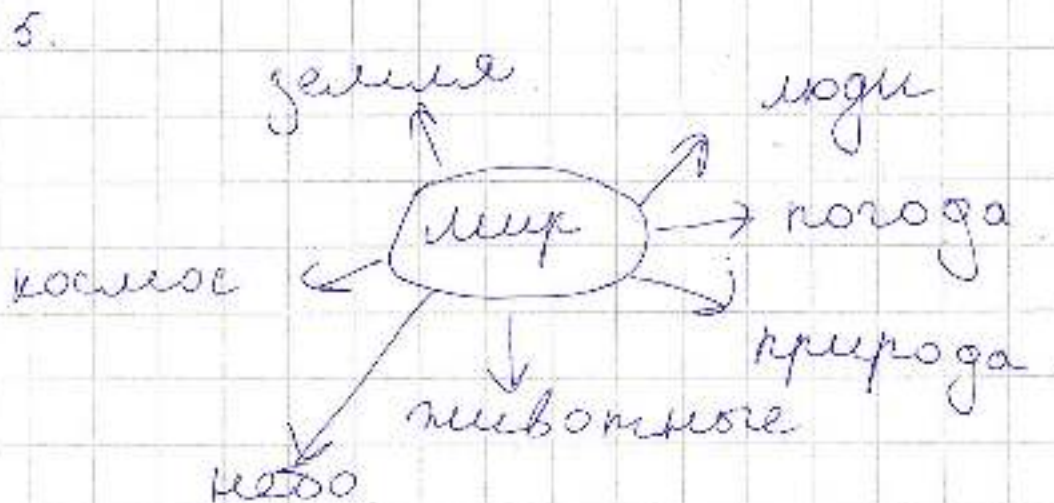 5.
земля
люди
мир
погода
космос
природа
животные
небо